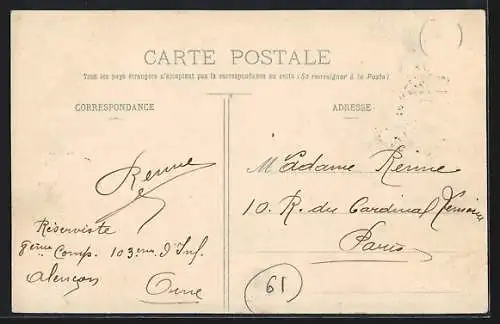 CARTE POSTALE
Tous les pays étrangers n'acceptent pas la correspondance au recto (Se renseigner à la Poste)
CORRESPONDANCE
ADRESSE
Renne
Réserviste
8ème Comp. 103ème d'Inf.
Alençon
Orne
Madame Renne
10. R. du Cardinal Lemoine
Paris
61